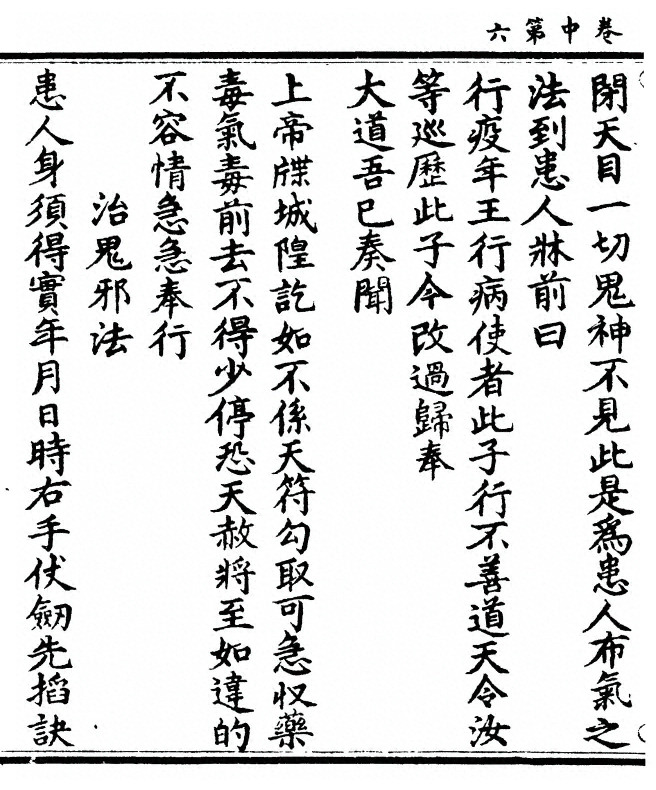 卷中第六
閉天目一切鬼神不見此是爲患人布氣之
法到患人牀前曰
行疫年王行病使者此子行不善道天令汝
等巡歷此子今改過歸奉
大道吾已奏聞
上帝牒城隍訖如不係天符勾取可急収藥
毒氣毒前去不得少停恐天赦將至如違的
不容情急急奉行
治鬼邪法
患人身須得實年月日時右手伏劒先搯訣